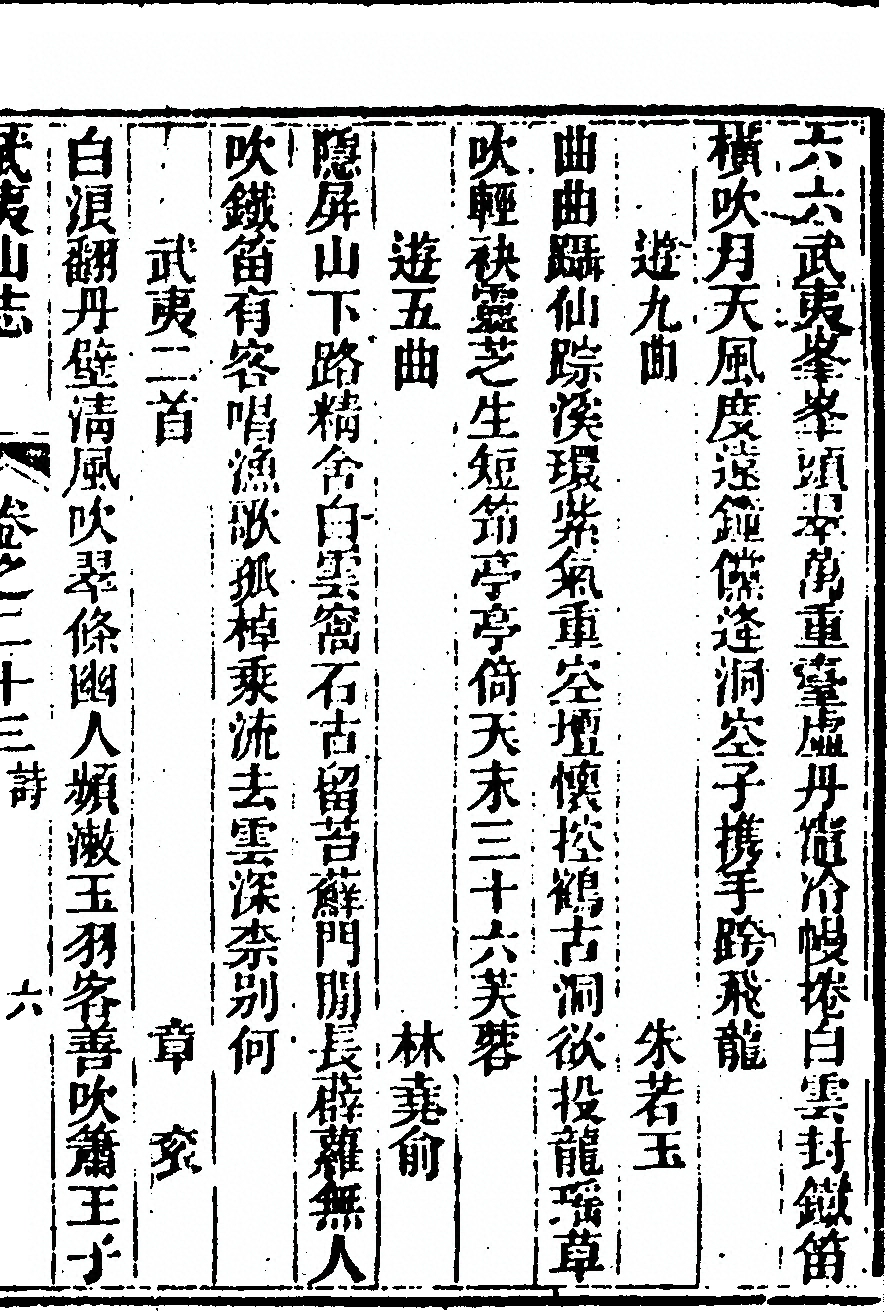 六六武夷峯峯頭翠萬重臺虛丹竈冷幔捲白雲封鐵笛
橫吹月天風度遠鐘儻逢洞空子携手跨飛龍
遊九曲 朱若玉
曲曲躡仙踪溪環紫氣重空壇懷控鶴古洞欲投龍瑤草
吹輕袂靈芝生短笻亭亭倚天末三十六芙蓉
遊五曲 林堯俞
隱屏山下路精舍白雲窩石古留苔蘚門閒長薜蘿無人
吹鐵笛有客唱漁歌孤棹乘流去雲深柰别何
武夷二首 章 兖
白浪翻丹壁淸風吹翠條幽人頻漱玉羽客善吹簫王子
武夷山志 卷之二十三 詩 六